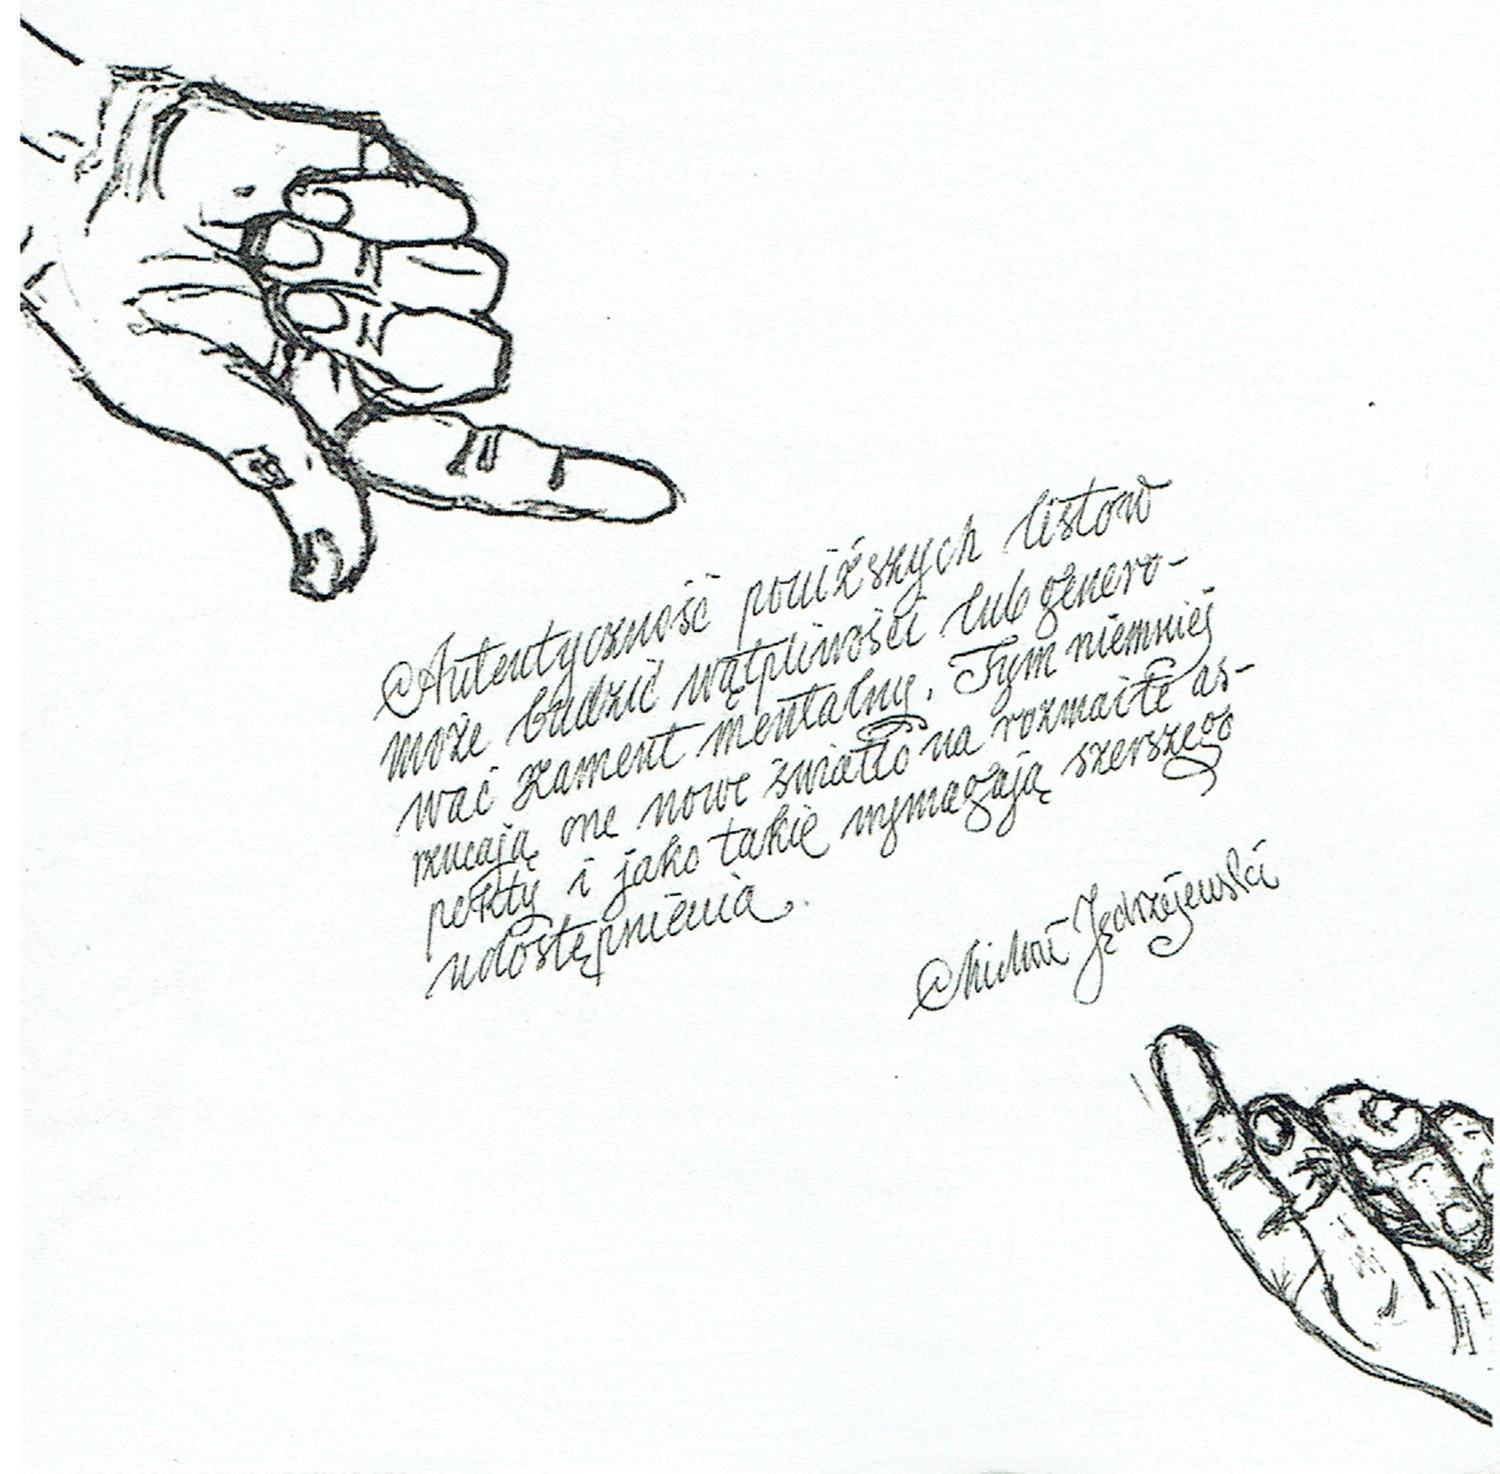 Autentyczność poniższych listów
może budzić wątpliwości lub genero-
wać zament mentalny. Tym niemniej
rzucają one nowe światło na rozmaite as-
pekty i jako takie wymagają szerszego
udostępnienia.
Michał Jędrzejewski